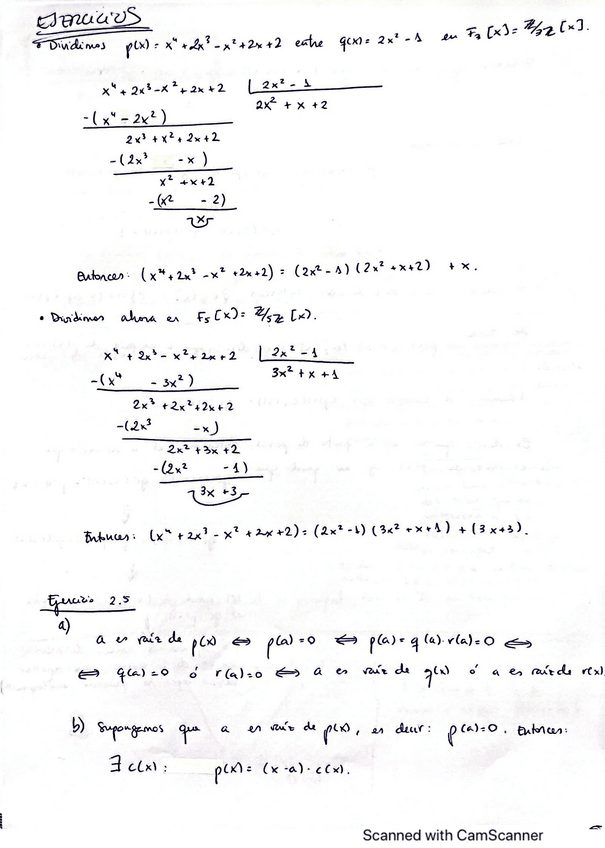 EJERCICIOS
• Dividimos p(x) = x⁴ + 2x³ - x² + 2x + 2 entre q(x) = 2x² - 1 en F₃[x] = ℤ/3ℤ [x].
x⁴ + 2x³ - x² + 2x + 2 | 2x² - 1
-(x⁴ - 2x²) 2x² + x + 2
2x³ + x² + 2x + 2
-(2x³ - x)
x² + x + 2
-(x² - 2)
x
Entonces: (x⁴ + 2x³ - x² + 2x + 2) = (2x² - 1)(2x² + x + 2) + x.
• Dividimos ahora en F₅[x] = ℤ/5ℤ [x].
x⁴ + 2x³ - x² + 2x + 2 | 2x² - 1
-(x⁴ - 3x²) 3x² + x + 1
2x³ + 2x² + 2x + 2
-(2x³ - x)
2x² + 3x + 2
-(2x² - 1)
3x + 3
Entonces: (x⁴ + 2x³ - x² + 2x + 2) = (2x² - 1)(3x² + x + 1) + (3x + 3).
Ejercicio 2.5
a)
a es raíz de p(x) ⟺ p(a) = 0 ⟺ p(a) = q(a)·r(a) = 0 ⟺
⟺ q(a) = 0 ó r(a) = 0 ⟺ a es raíz de q(x) ó a es raíz de r(x).
b) Supongamos que a es raíz de p(x), es decir: p(a) = 0. Entonces:
∃ c(x) : p(x) = (x - a) · c(x).
Scanned with CamScanner